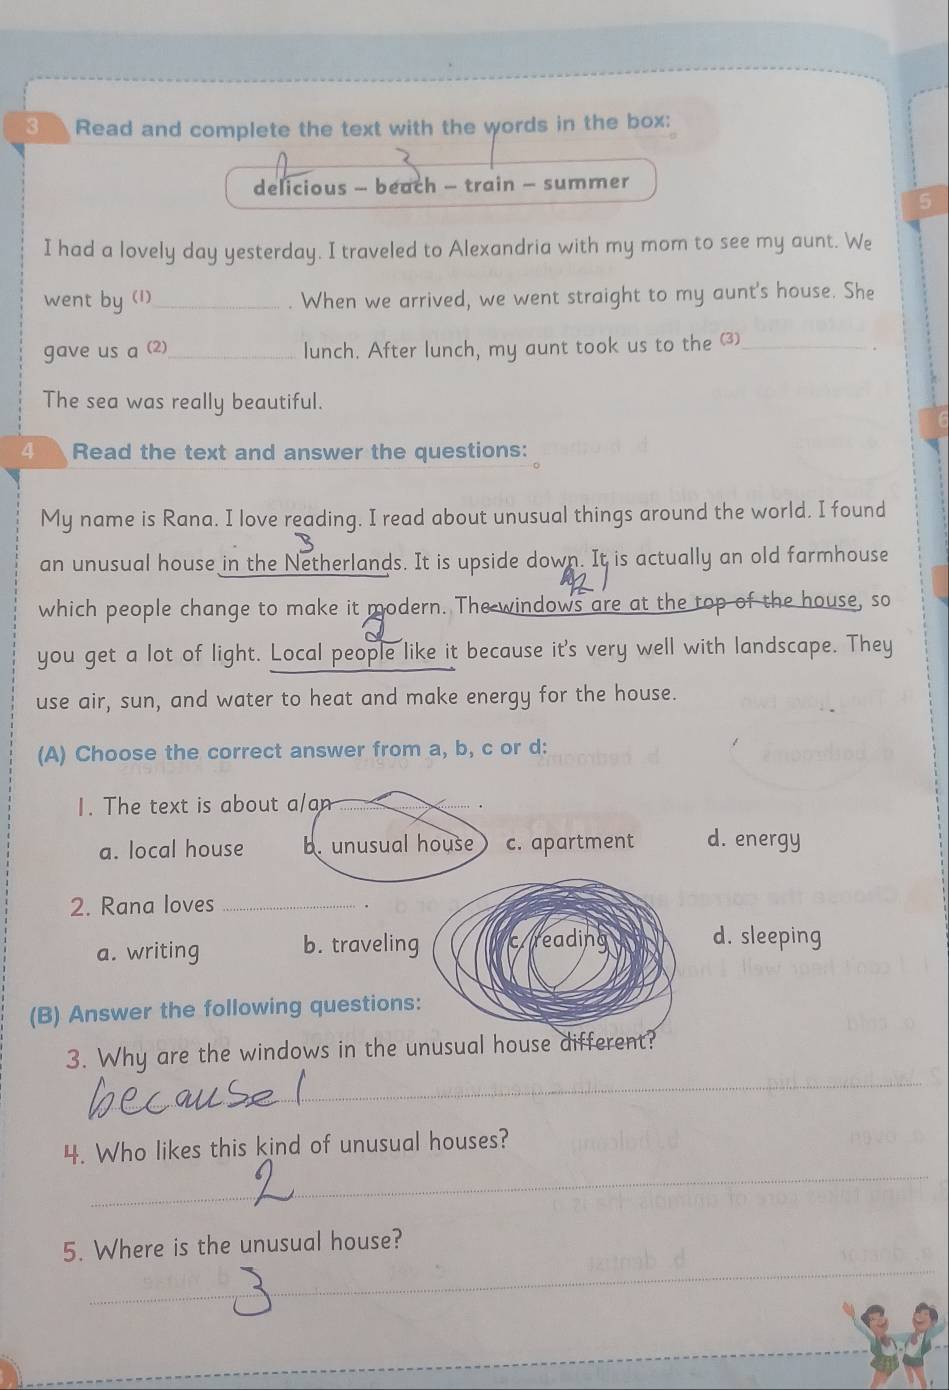 3 Read and complete the text with the words in the box:
2 3 1
delicious – beach – train – summer
5
I had a lovely day yesterday. I traveled to Alexandria with my mom to see my aunt. We
went by (1)____________ . When we arrived, we went straight to my aunt's house. She
gave us a (2)____________ lunch. After lunch, my aunt took us to the (3)____________ .
The sea was really beautiful.
6
4 Read the text and answer the questions:
My name is Rana. I love reading. I read about unusual things around the world. I found
3
an unusual house in the Netherlands. It is upside down. It is actually an old farmhouse
1
which people change to make it modern. The windows are at the top of the house, so
2
you get a lot of light. Local people like it because it's very well with landscape. They
use air, sun, and water to heat and make energy for the house.
(A) Choose the correct answer from a, b, c or d:
1. The text is about a/an ____________ .
a. local house b. unusual house c. apartment d. energy
2. Rana loves ____________ .
a. writing b. traveling c. reading d. sleeping
(B) Answer the following questions:
3. Why are the windows in the unusual house different?
because 1
4. Who likes this kind of unusual houses?
2
5. Where is the unusual house?
3